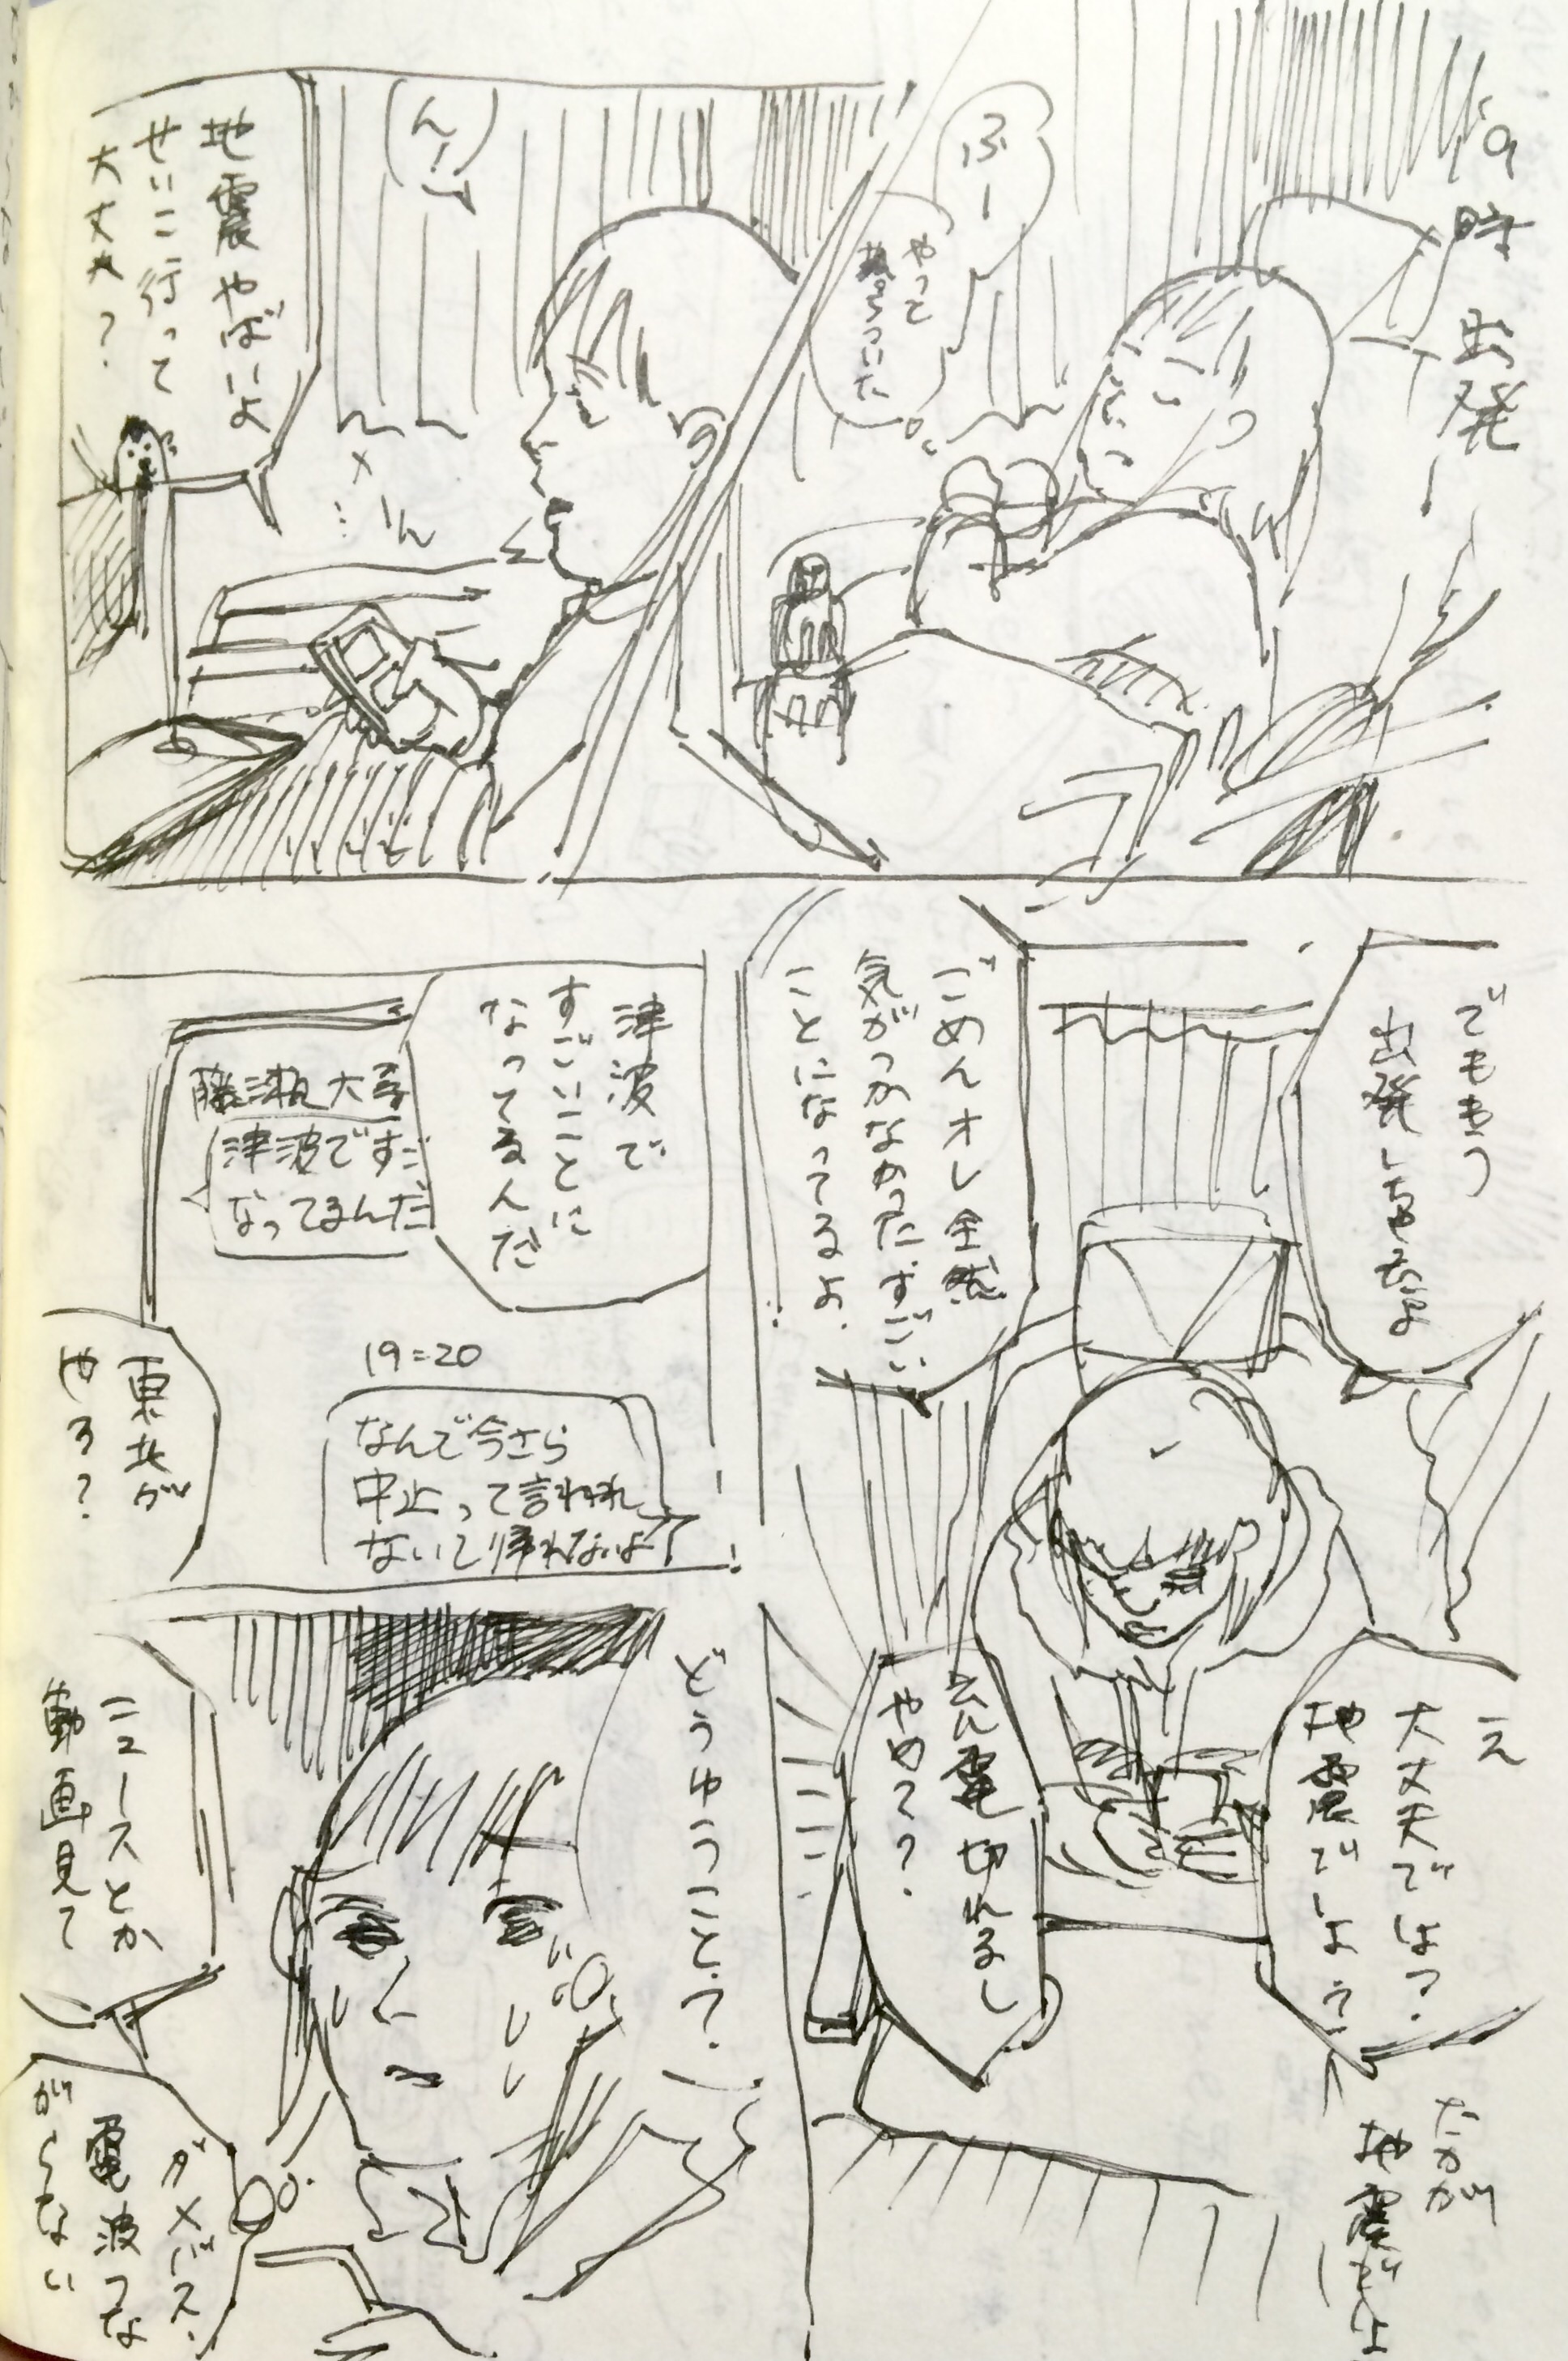 19時 出発ー
ふー
やって
落ちついた
ん!
メ
ーん
地震やばいよ
せいこ行って
大丈夫?
でももう
出発しちゃったよ
ごめんオレ全然
気がつかなかったすごい
ことになってるよ
え
大丈夫では?
地震でしょう?
たかが
地震でしょ
充電切れるし
やめて?
津波で
すごいことに
なってるんだ
津波ですご
なってるんだ
19=20
なんで今さら
中止って言われ
ないし帰れないよ
東北が
やろ?
どうゆうこと?
ニュースとか
動画見て
ダメバス
電波つな
がらない